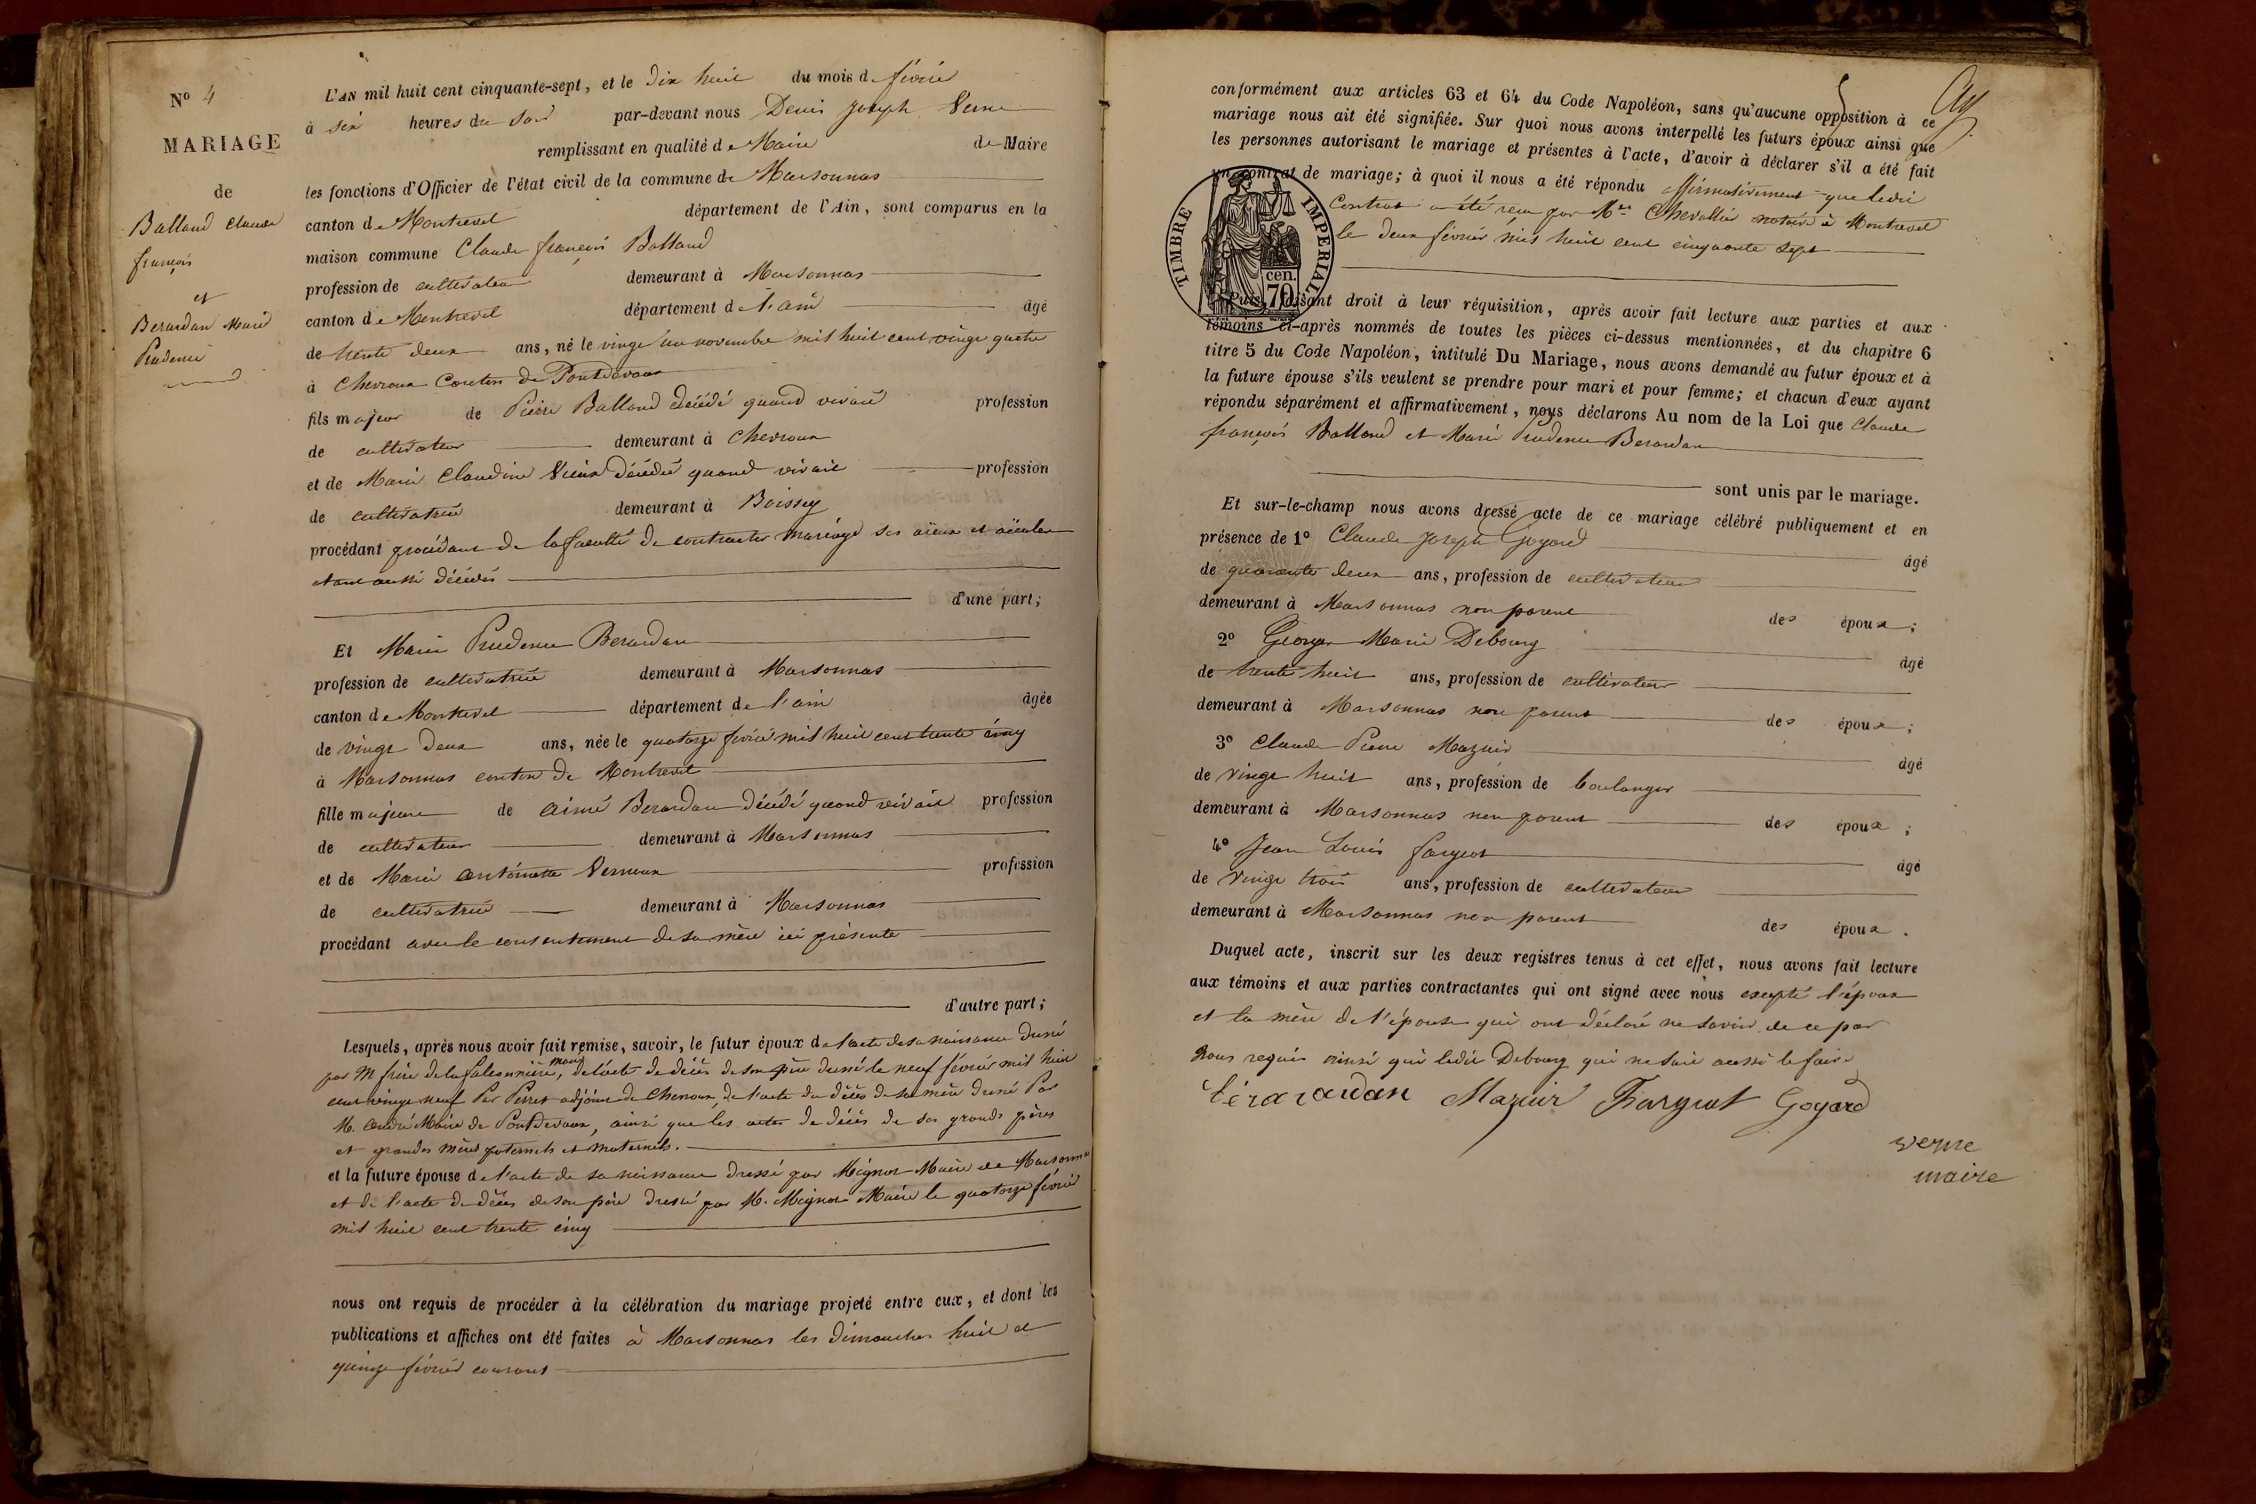 N° 4
MARIAGE
de
Balland Claude
françois
et
Berardan Marie
Prudence
L'AN mil huit cent cinquante-sept, et le dix huit du mois de février
à six heures du soir par-devant nous Denis Joseph Verne
remplissant en qualité de Maire de Maire
les fonctions d'Officier de l'état civil de la commune de Marsonnas
canton de Montrevel département de l'Ain, sont comparus en la
maison commune Claude françois Balland
profession de cultivateur demeurant à Marsonnas
canton de Montrevel département de l'ain âgé
de trente deux ans, né le vingt un novembre mil huit cent vingt quatre
à Chevroux Canton de Pontdevaux
fils majeur de Pierre Balland décédé quand vivait profession
de cultivateur demeurant à Chevroux
et de Marie Claudine Vieux décédée quand vivait profession
de cultivatrice demeurant à Boissey
procédant procédant de la faculté de contracter mariage ses aïeux et aïeules
étant aussi décédés
d'une part;
Et Marie Prudence Berardan
profession de cultivatrice demeurant à Marsonnas
canton de Montrevel département de l'ain âgée
de vingt deux ans, née le quatorze février mil huit cent trente cinq
à Marsonnas canton de Montrevel
fille majeure de Aimé Berardan décédé quand vivait profession
de cultivateur demeurant à Marsonnas
et de Marie Antoinette Verneux profession
de cultivatrice demeurant à Marsonnas
procédant avec le consentement de sa mère ici présente
d'autre part;
Lesquels, après nous avoir fait remise, savoir, le futur époux de l'acte de sa naissance dressé
par M frère de la falconnière, maire de l'acte de décès de son père dressé le neuf février mil huit
cent vingt neuf Par Perret adjoint de Chevroux, de l'acte du décès de sa mère dressé Par
M. André Maire de Pontdevaux, ainsi que les actes de décès de ses grands pères
et grandes mères paternels et maternels.
et la future épouse de l'acte de sa naissance dressé par Mignot Maire de Marsonnas
et de l'acte de décès de son père dressé par M. Mignot Maire le quatorze février
mil huit cent trente cinq
nous ont requis de procéder à la célébration du mariage projeté entre eux, et dont les
publications et affiches ont été faites à Marsonnas les dimanches huit et
quinze février courant
conformément aux articles 63 et 64 du Code Napoléon, sans qu'aucune opposition à ce
mariage nous ait été signifiée. Sur quoi nous avons interpellé les futurs époux ainsi que
les personnes autorisant le mariage et présentes à l'acte, d'avoir à déclarer s'il a été fait
un contrat de mariage; à quoi il nous a été répondu affirmativement que ledit
Contrat a été reçu par Me Chevallier notaire à Montrevel
le deux février mil huit cent cinquante sept
TIMBRE IMPERIAL
70 cen.
Puis, faisant droit à leur réquisition, après avoir fait lecture aux parties et aux
témoins ci-après nommés de toutes les pièces ci-dessus mentionnées, et du chapitre 6
titre 5 du Code Napoléon, intitulé Du Mariage, nous avons demandé au futur époux et à
la future épouse s'ils veulent se prendre pour mari et pour femme; et chacun d'eux ayant
répondu séparément et affirmativement, nous déclarons Au nom de la Loi que Claude
françois Balland et Marie Prudence Berardan
sont unis par le mariage.
Et sur-le-champ nous avons dressé acte de ce mariage célébré publiquement et en
présence de 1° Claude Joseph Goyard âgé
de quarante deux ans, profession de cultivateur
demeurant à Marsonnas non parent des époux;
2° Georges Marie Debourg âgé
de trente huit ans, profession de cultivateur
demeurant à Marsonnas non parent des époux;
3° Claude Pierre Mazuir âgé
de vingt huit ans, profession de boulanger
demeurant à Marsonnas non parent des époux;
4° Jean Louis fargeot âgé
de vingt trois ans, profession de cultivateur
demeurant à Marsonnas non parent des époux.
Duquel acte, inscrit sur les deux registres tenus à cet effet, nous avons fait lecture
aux témoins et aux parties contractantes qui ont signé avec nous excepté l'époux
et la mère de l'épouse qui ont déclaré ne savoir, de ce par
nous requis ainsi que ledit Debourg qui ne sait aussi le faire
Mazuir Fargeot Goyard
verne
maire